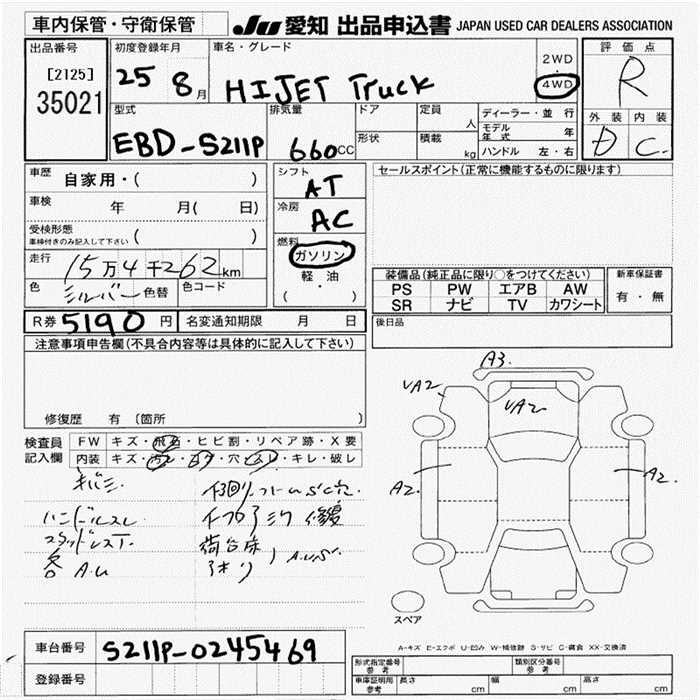 車内保管・守衛保管
JU 愛知 出品申込書 JAPAN USED CAR DEALERS ASSOCIATION
出品番号
[2125]
35021
初度登録年月
25 8月
車名・グレード
HIJET Truck
2WD
・
4WD
評価点
R
外装 内装
D C
型式
EBD-S211P
排気量
660CC
ドア
形状
定員
人
積載
kg
ディーラー・並行
モデル年式 年
ハンドル 左・右
車歴
自家用・( )
車検 年 月( 日)
受検形態
車検付きのみ記入して下さい ( )
走行
15万4千262km
色 シルバー 色替 色コード
シフト
AT
冷房
AC
燃料
ガソリン
・
軽・油
( )
セールスポイント(正常に機能するものに限ります)
装備品(純正品に限り○をつけてください)
PS PW エアB AW
SR ナビ TV カワシート
新車保証書
有・無
R券 5190円 名変通知期限 月 日
後日品
注意事項申告欄(不具合内容等は具体的に記入して下さい)
修復歴 有〔箇所 〕
検査員記入欄
FW キズ・飛石・ヒビ割・リペア跡・X要
内装 キズ・汚レ・コゲ・穴・スレ・キレ・破レ
キバミ
ハンドルスレ
スタッドレスT.
各 A.U
下回りフレームSC穴
荷台床
A.U.S
A3
UA2
UA2
A2
A2
スペア
A-キズ E-エクボ U-凹み W-補修跡 S-サビ C-腐食 XX-交換済
車台番号 S211P-0245469
登録番号
形式指定番号 参考
類別区分番号 参考
車庫証明用 参考 長さ cm 幅 cm 高さ cm